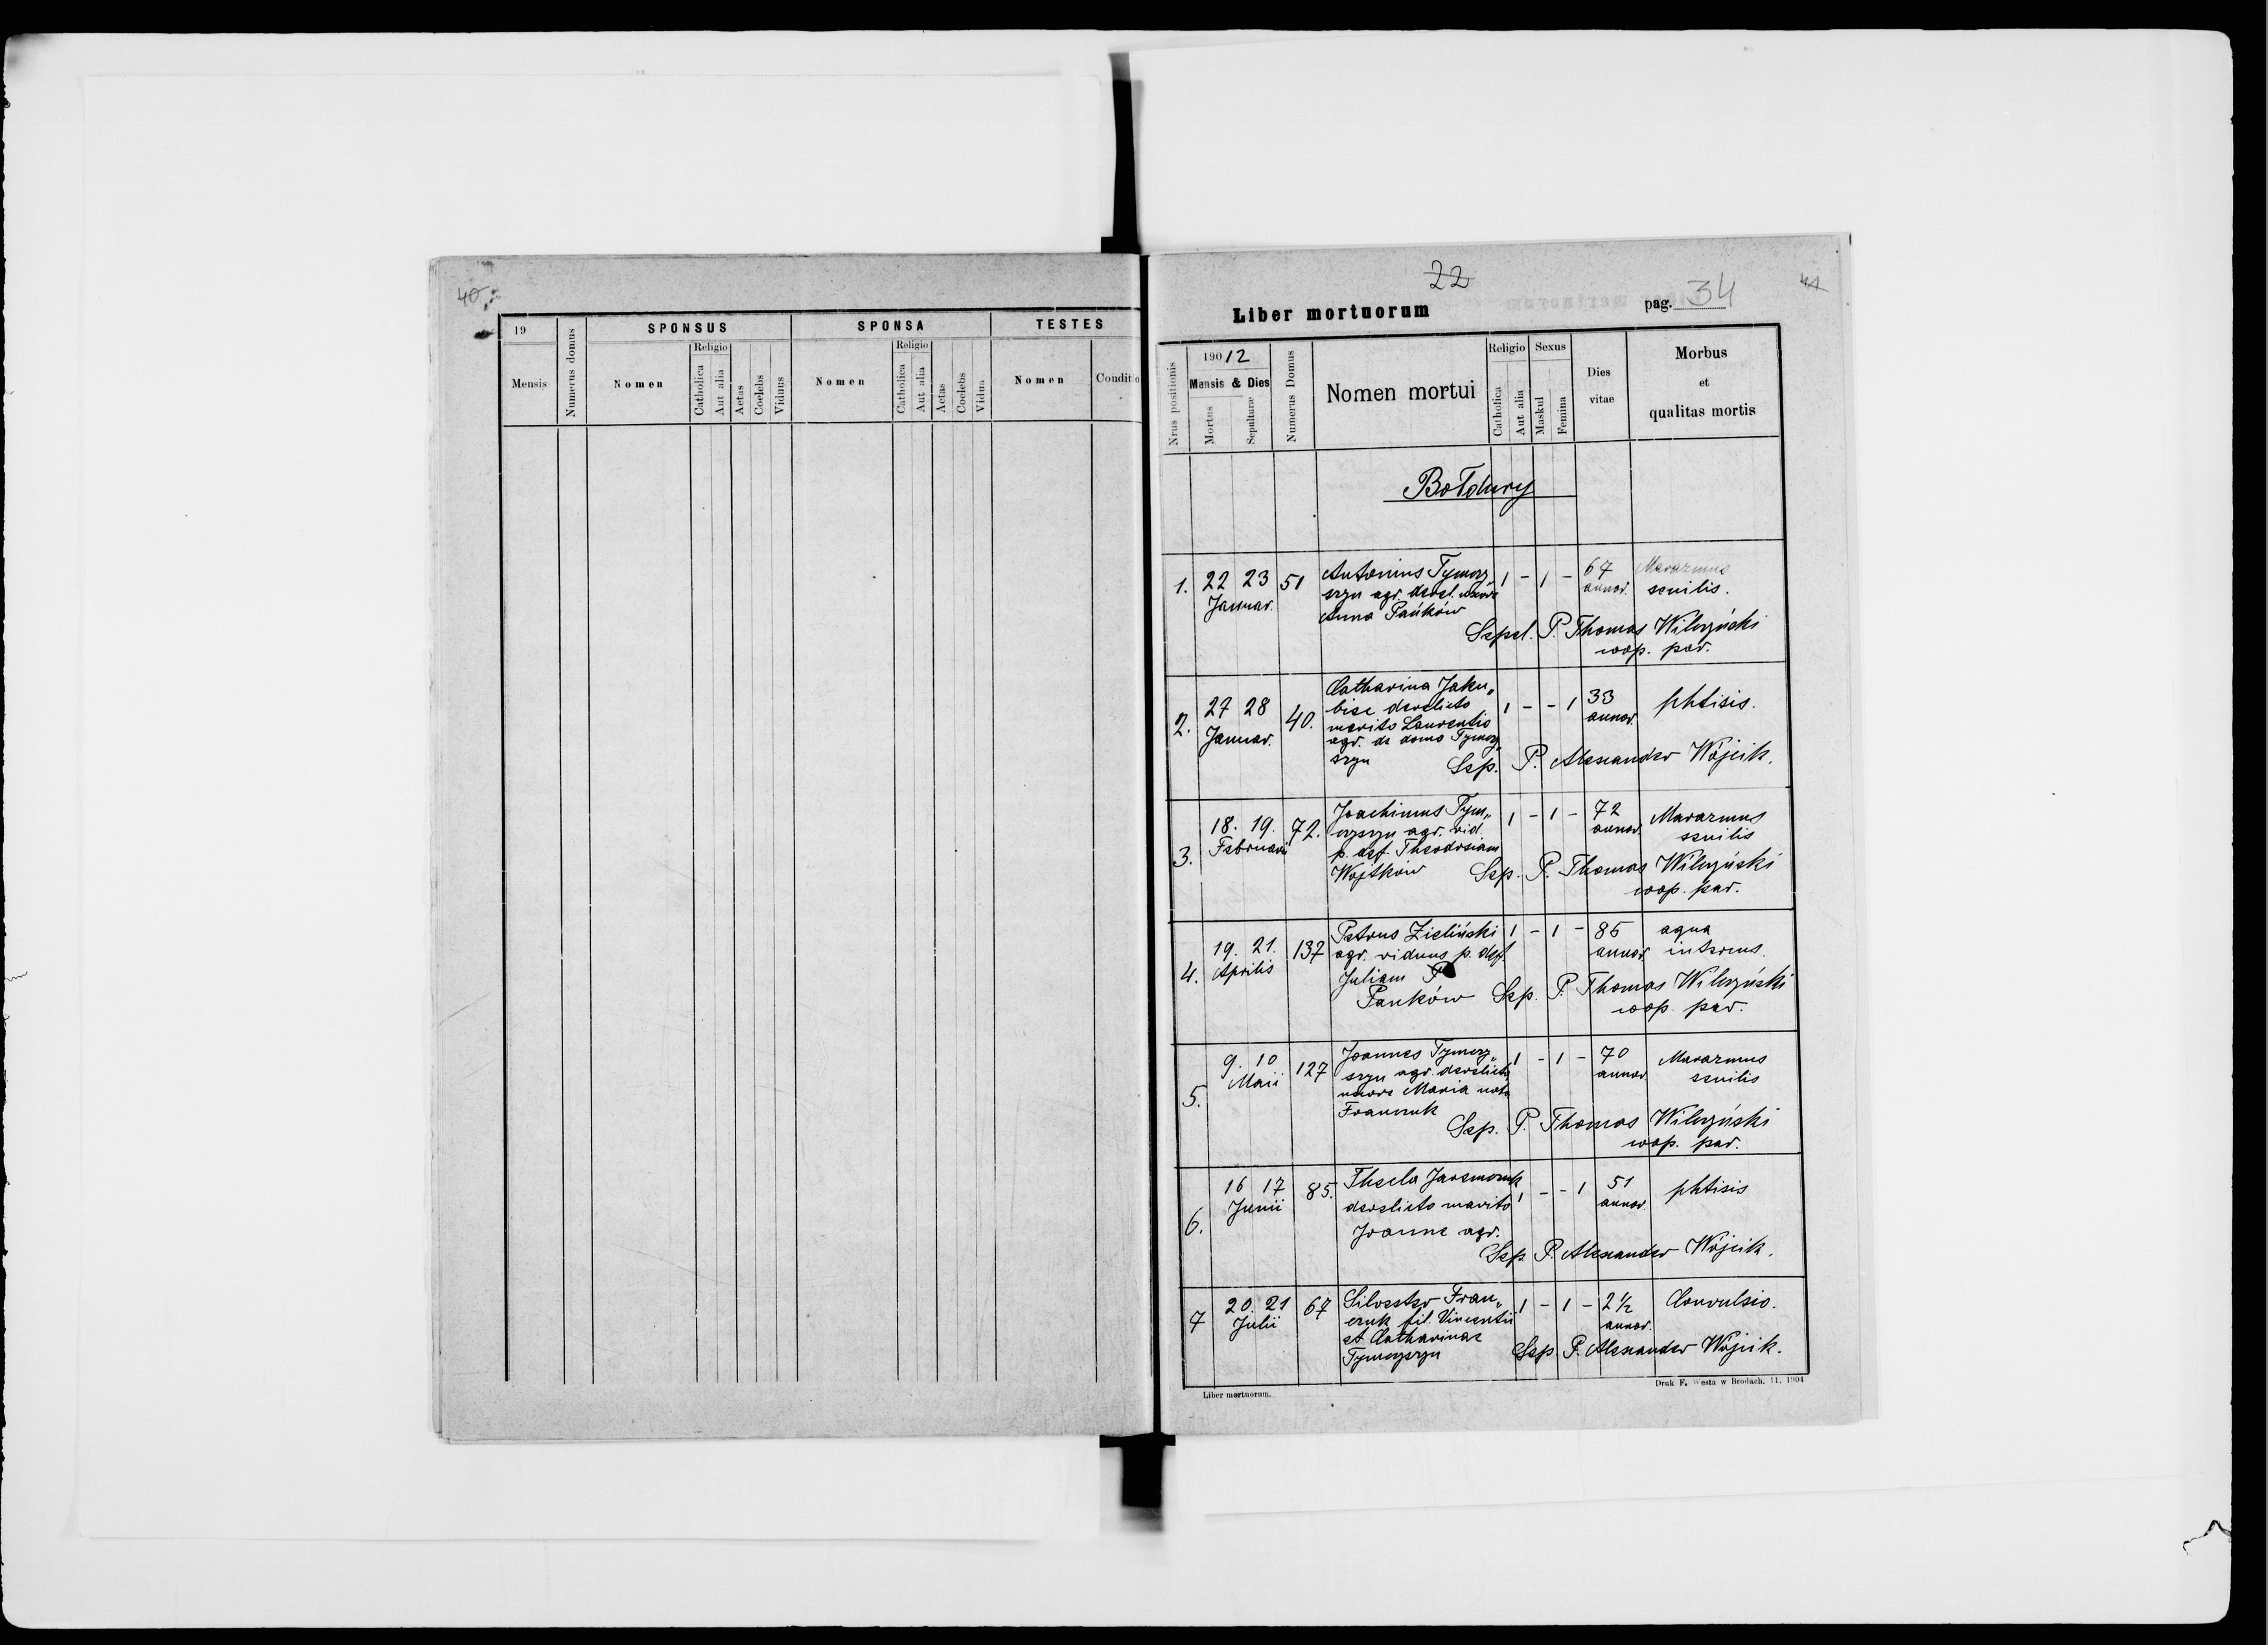 40
19
SPONSUS
SPONSA
TESTES
Mensis
Numerus domus
Nomen
Religio
Catholica
Aut alia
Aetas
Coelebs
Viduus
Nomen
Religio
Catholica
Aut alia
Aetas
Coelebs
Vidua
Nomen
Conditio
22
Liber mortuorum
pag. 34
41
Nrus positionis
19012
Mensis & Dies
Mortus
Sepulturæ
Numerus Domus
Nomen mortui
Religio
Catholica
Aut alia
Sexus
Maskul
Femina
Dies
vitae
Morbus
et
qualitas mortis
Bołdury
1. 22 23 51 Antonius Tymczy„ 1 - 1 - 67 Marazmus
Januar. szyn agr. derel. uxore annor. senilis.
Anna Pańków
Sepel. P. Thomas Wilczyński
coop. par.
2. 27 28 40. Catharina Jaku„ 1 - - 1 33 phtisis.
Januar. biec derelicto annor.
marito Laurentio
agr. de domo Tymczy„
szyn Sep. P. Alexander Wójcik.
3. 18. 19. 72. Joachimus Tym„ 1 - 1 - 72 Marazmus
Februarii czyszyn agr. vid. annor. senilis
p. def. Theodosiam
Wojtków Sep. P. Thomas Wilczyński
coop. par.
4. 19. 21. 137 Petrus Zieliński 1 - 1 - 85 aqua
Aprilis agr. viduus p. def. annor. intercus.
Juliam P
Pańków Sep. P. Thomas Wilczyński
coop. par.
5. 9. 10 127 Joannes Tymczy„ 1 - 1 - 70 Marazmus
Maii szyn agr. derelicta annor. senilis
uxore Maria nata
Franczuk
Sep. P. Thomas Wilczyński
coop. par.
6. 16 17 85. Thecla Jaremczuk 1 - - 1 51 phtisis
Junii derelicto marito annor.
Joanne agr.
Sep. P. Alexander Wójcik.
7 20. 21 67 Silvester Fran„ 1 - 1 - 2½ Convulsio.
Julii czuk fil. Vincentii annor.
et Catharinae
Tymczyszyn Sep. P. Alexander Wójcik.
Liber mortuorum.
Druk F. Westa w Brodach. 11. 1904